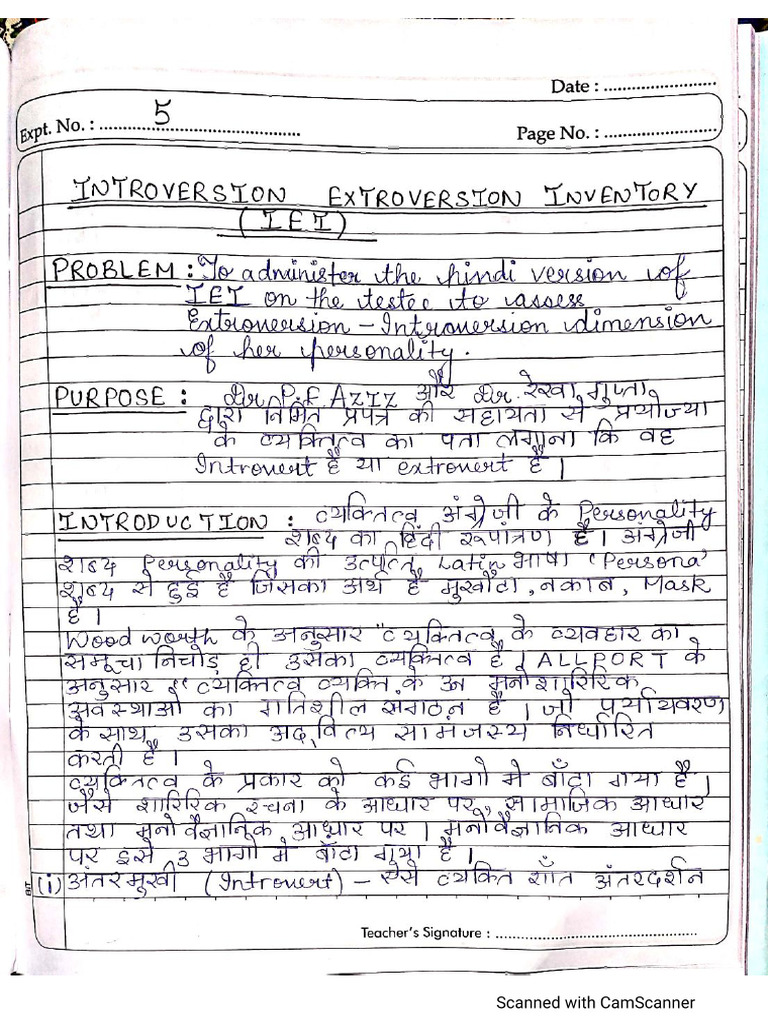 Date : ........................
Expt. No. : 5
Page No. : ........................
INTROVERSION EXTROVERSION INVENTORY
(IEI)
PROBLEM : To administer the hindi version of
IEI on the testee to assess
Extroversion – Introversion dimension
of her personality.
PURPOSE : Dr. P.F AZIZ और Dr. रेखा गुप्ता
द्वारा निर्मित प्रपत्र की सहायता से प्रयोज्या
के व्यक्तित्व का पता लगाना कि वह
Introvert है या extrovert है।
INTRODUCTION : व्यक्तित्व अंग्रेजी के Personality
शब्द का हिंदी रूपांत्रण है। अंग्रेजी
शब्द Personality की उत्पत्ति Latin भाषा 'Persona'
शब्द से हुई है जिसका अर्थ है मुखौटा, नकाब, Mask
है।
Wood worth के अनुसार "व्यक्तित्व के व्यवहार का
समूचा निचोड़ ही उसका व्यक्तित्व है। ALLPORT के
अनुसार "व्यक्तित्व व्यक्ति के उन मनोशारिरिक
अवस्थाओं का गतिशील संगठन है। जो पर्यायवरण
के साथ, उसका अद्वित्य सामजस्य निर्धारित
करती है।
व्यक्तित्व के प्रकार को कई भागो मे बाँटा गया है।
जैसे शारिरिक रचना के आधार पर, सामाजिक आधार
तथा मनोवैज्ञानिक आधार पर। मनोवैज्ञानिक आधार
पर इसे 3 भागो मे बाँटा गया है।
(i) अंतरमुखी (Introvert) – ऐसे व्यकित शाँत अंतरदर्शन
Teacher's Signature : ........................
Scanned with CamScanner